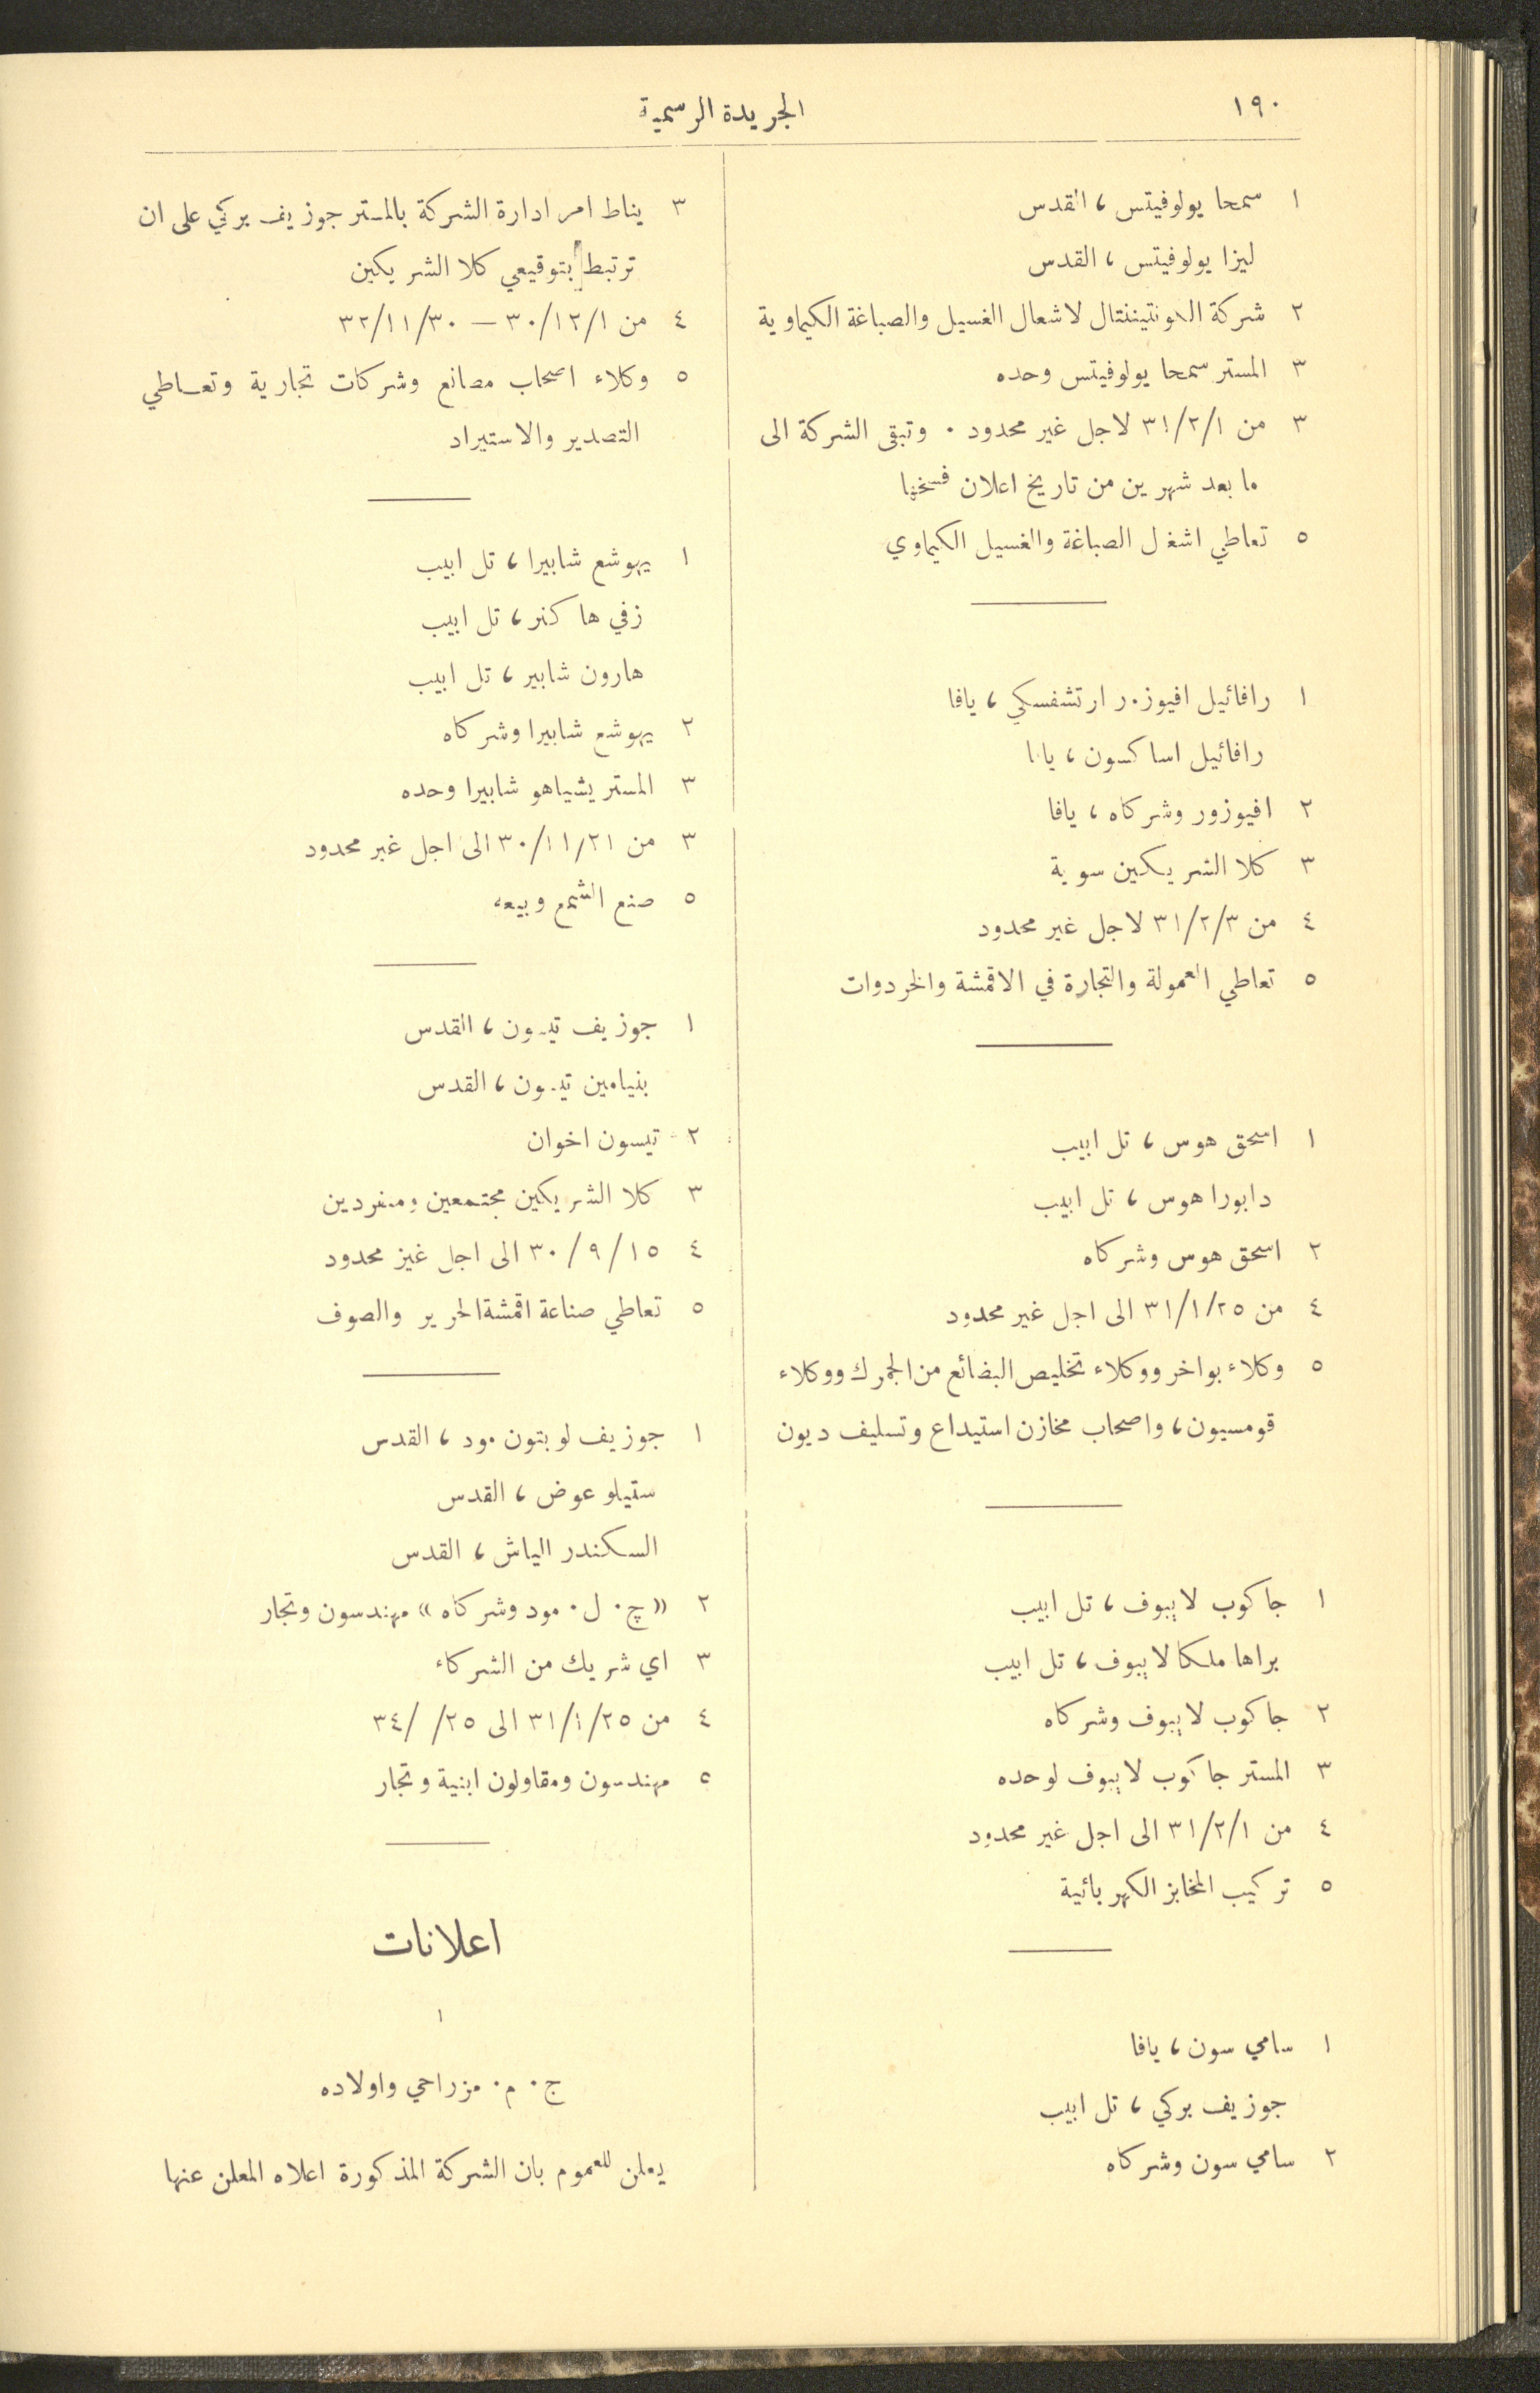 ١٩٠
الجريدة الرسمية
١ سمحا يولوفيتس، القدس
ليزا يولوفيتس، القدس
٢ شركة الكونتيننتال لاشعال الغسيل والصباغة الكيماوية
٣ المستر سمحا يولوفيتس وحده
٣ من ٣١/٢/١ لاجل غير محدود . وتبقى الشركة الى
ما بعد شهرين من تاريخ اعلان فسخها
٥ تعاطي اشغال الصباغة والغسيل الكيماوي
١ رافائيل افيوزور ارتشفسكي، يافا
رافائيل اساكسون، يافا
٢ افيوزور وشركاه، يافا
٣ كلا الشريكين سوية
٤ من ٣١/٢/٣ لاجل غير محدود
٥ تعاطي العمولة والتجارة في الاقمشة والخردوات
١ اسحق هوس، تل ابيب
دابورا هوس، تل ابيب
٢ اسحق هوس وشركاه
٤ من ٣١/١/٢٥ الى اجل غير محدود
٥ وكلاء بواخر ووكلاء تخليص البضائع من الجمرك ووكلاء
قومسيون، واصحاب مخازن استيداع وتسليف ديون
١ جاكوب لايبوف، تل ابيب
براها ملكا لايبوف، تل ابيب
٢ جاكوب لايبوف وشركاه
٣ المستر جاكوب لايبوف لوحده
٤ من ٣١/٢/١ الى اجل غير محدود
٥ تركيب المخابز الكهربائية
١ سامي سون، يافا
جوزيف بركي، تل ابيب
٢ سامي سون وشركاه
٣ يناط امر ادارة الشركة بالمستر جوزيف بركي على ان
ترتبط بتوقيعي كلا الشريكين
٤ من ٣٠/١٢/١ — ٣٢/١١/٣٠
٥ وكلاء اصحاب مصانع وشركات تجارية وتعاطي
التصدير والاستيراد
١ يهوشع شابيرا، تل ابيب
زفي هاكنر، تل ابيب
هارون شابير، تل ابيب
٢ يهوشع شابيرا وشركاه
٣ المستر يشياهو شابيرا وحده
٣ من ٣٠/١١/٢١ الى اجل غير محدود
٥ صنع الشمع وبيعه
١ جوزيف تيسون، القدس
بنيامين تيسون، القدس
٢ تيسون اخوان
٣ كلا الشريكين مجتمعين ومنفردين
٤ ٣٠/٩/١٥ الى اجل غير محدود
٥ تعاطي صناعة اقمشة الحرير والصوف
١ جوزيف لوبتون مود، القدس
ستيلو عوض، القدس
السكندر الياش، القدس
٢ «چ. ل. مود وشركاه» مهندسون وتجار
٣ اي شريك من الشركاء
٤ من ٣١/١/٢٥ الى ٢٥/ /٣٤
٥ مهندسون ومقاولون ابنية وتجار
اعلانات
١
ج. م. مزراحي واولاده
يعلن للعموم بان الشركة المذكورة اعلاه المعلن عنها